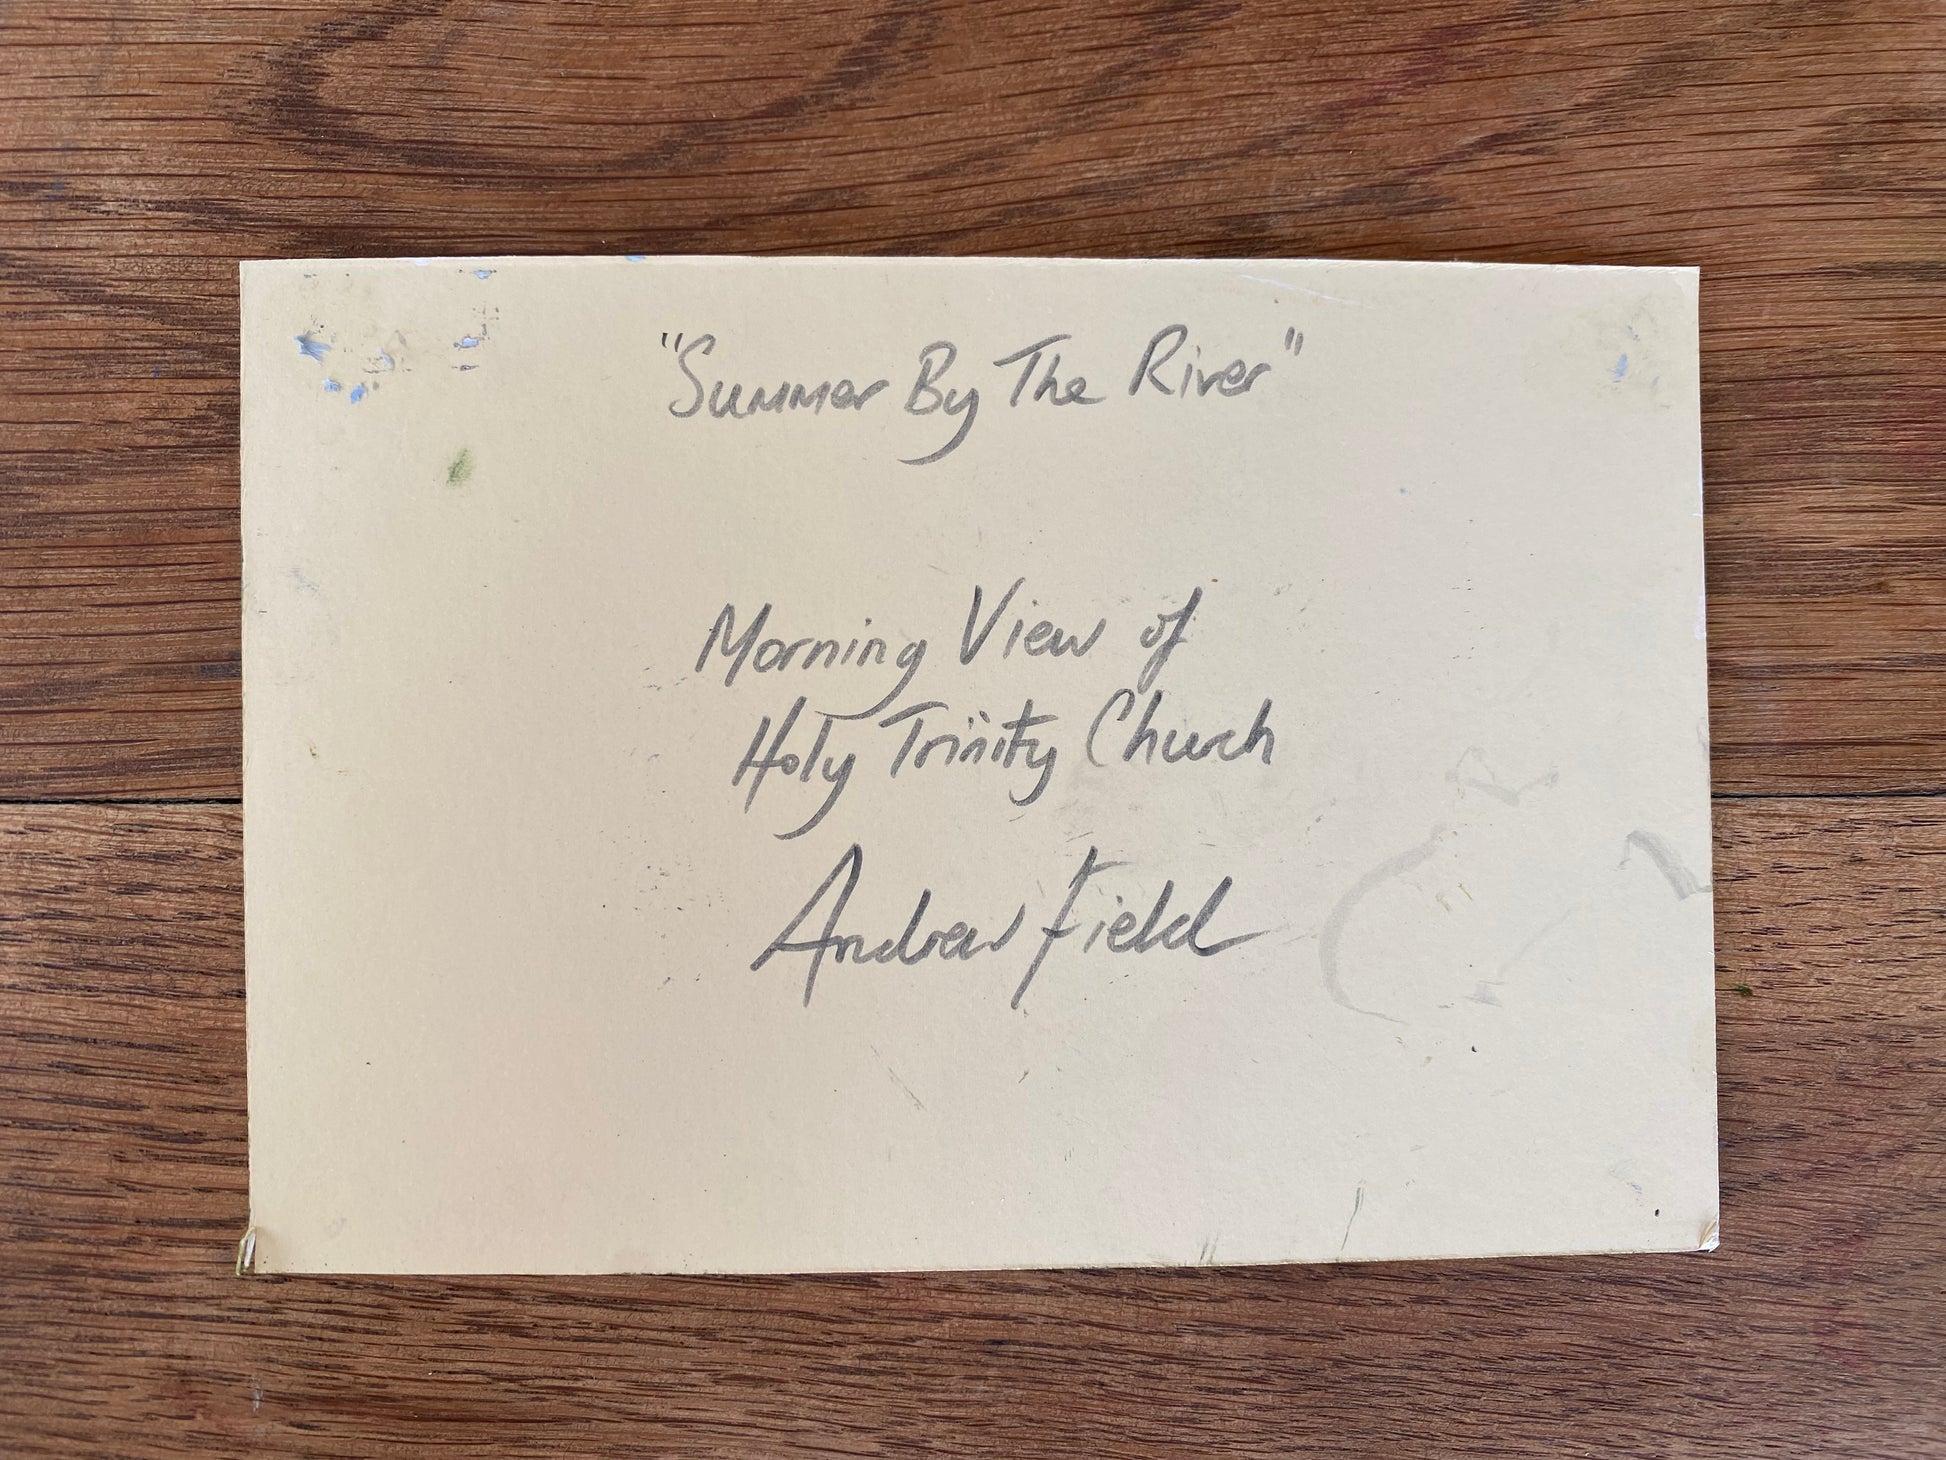 "Summer By The River"
Morning View of
Holy Trinity Church
Andrew Field